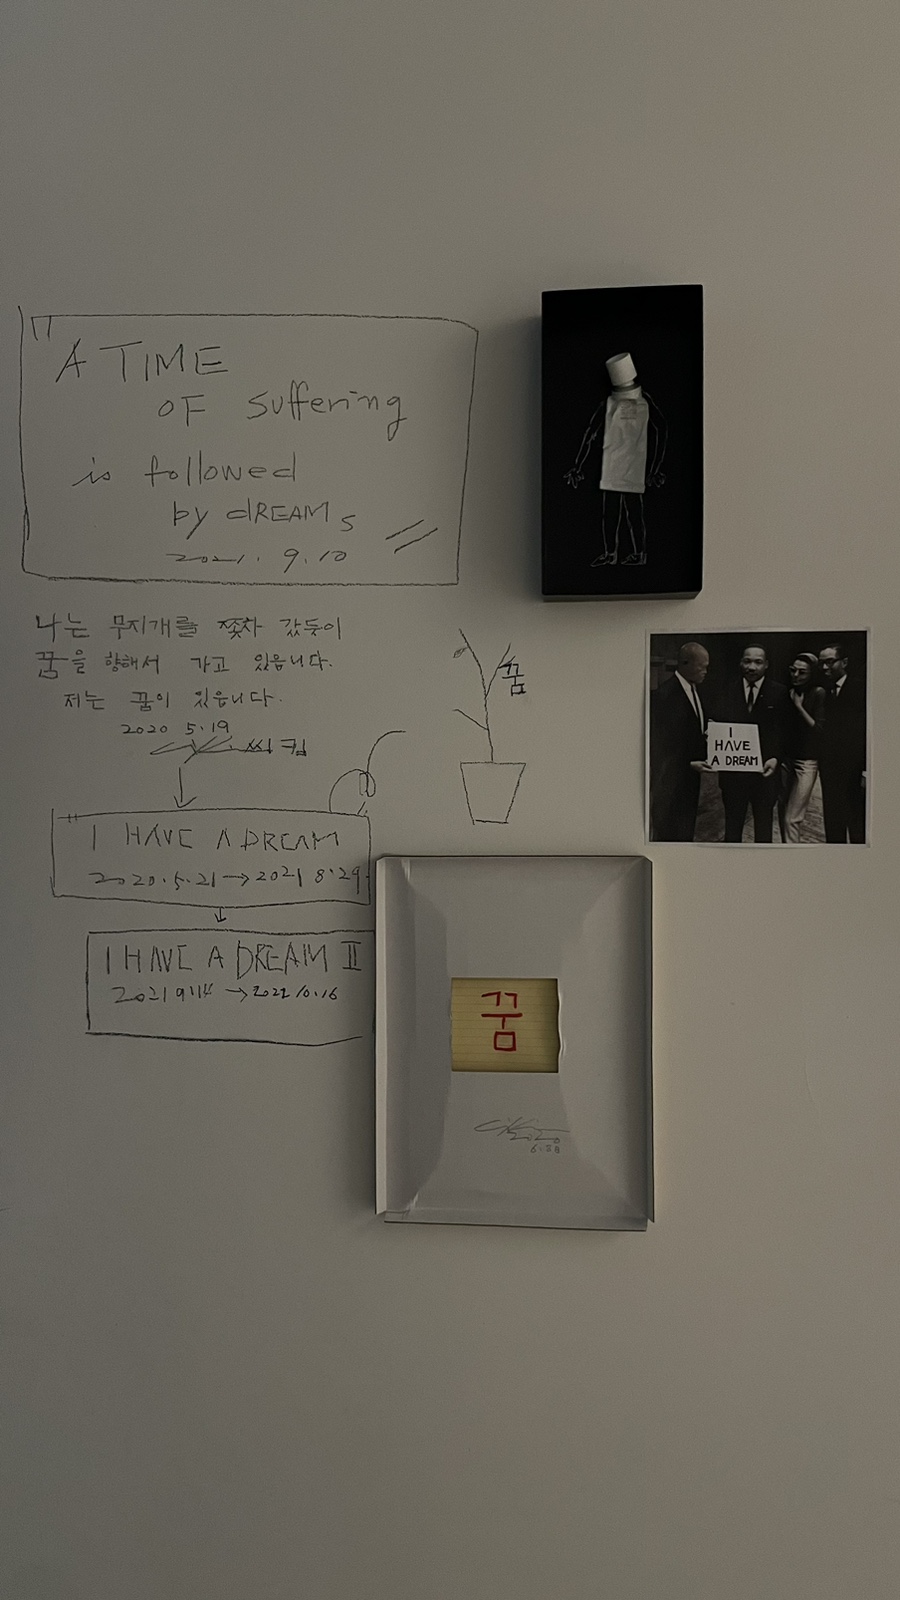 "A TIME
OF suffering
is followed
by dREAMs
2021. 9. 10
나는 무지개를 쫓차 갔듯이
꿈을 향해서 가고 있읍니다.
저는 꿈이 있읍니다.
2020 5.19
씨킴
"I HAVE A DREAM
2020.5.21 → 2021 8.29
I HAVE A DREAM II
2021 9.14 → 2022 10.16
꿈
I
HAVE
A DREAM
꿈